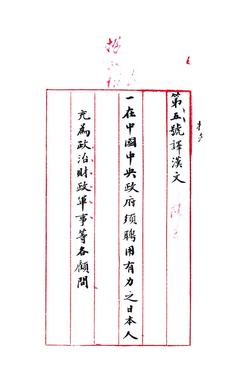 第五號譯漢文
一在中國中央政府須聘用有力之日本人
充為政治財政軍事等各顧問